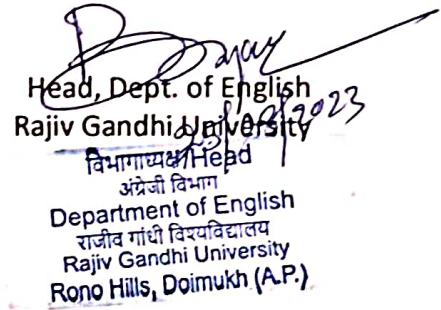 Head, Dept. of English
Rajiv Gandhi University
विभागाध्यक्ष/Head
अंग्रेजी विभाग
Department of English
राजीव गांधी विश्वविद्यालय
Rajiv Gandhi University
Rono Hills, Doimukh (A.P.)